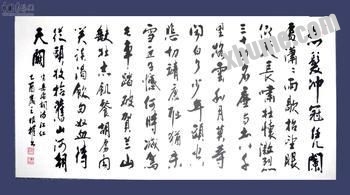 怒髮冲冠凭闌
處瀟瀟雨歇抬望眼
仰天長嘯壯懷激烈
三十功名塵與土八千
里路雲和月莫等
閒白了少年頭空
悲切靖康恥猶未
雪臣子憾何時滅駕
長車踏破賀蘭山
缺壯志飢餐胡虜肉
笑談渴飲匈奴血待
從頭收拾舊山河朝
天闕
乙酉夏